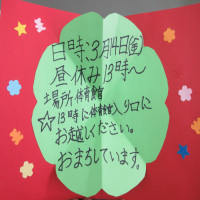 日時:3月14日(金)
昼休み 13時〜
場所 体育館
☆13時に体育館入り口に
お越しください。
おまちしています。